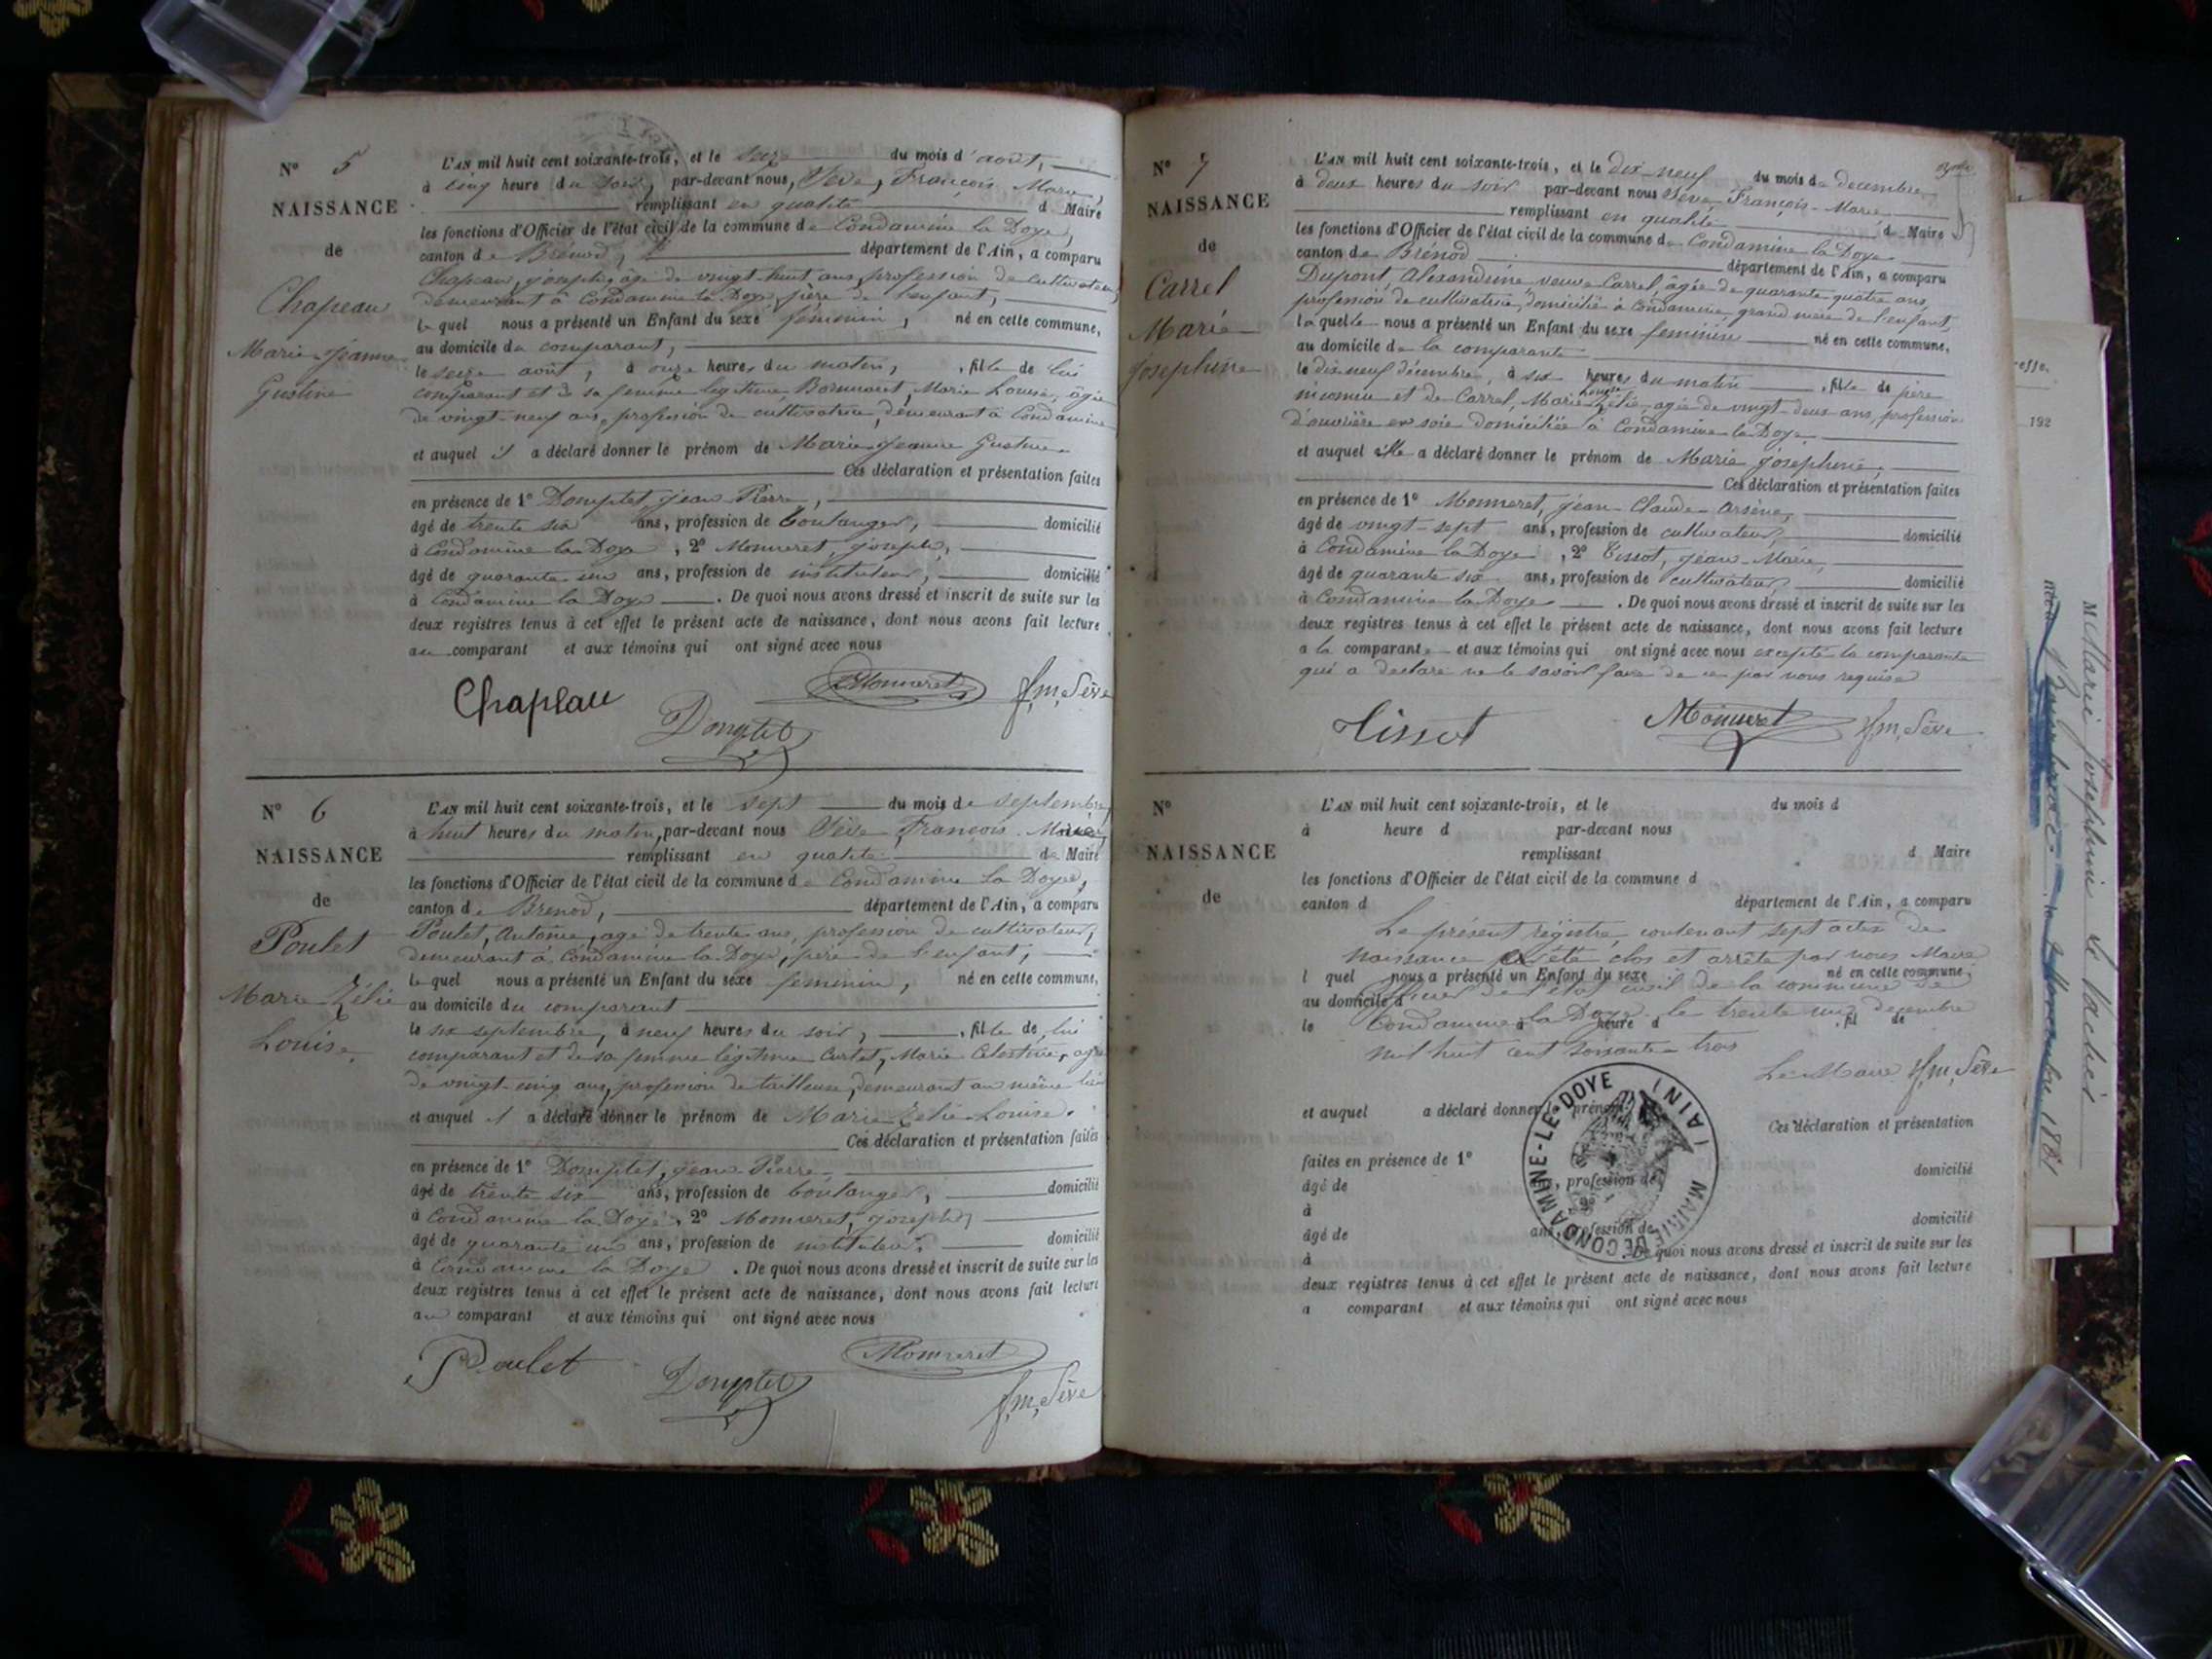 N° 5
NAISSANCE
de
Chapeau
Marie-Jeanne
Gustine
L'AN mil huit cent soixante-trois, et le seize du mois d'août,
à cinq heure du soir, par-devant nous, Sève, François Marie,
remplissant en qualité d Maire
les fonctions d'Officier de l'état civil de la commune de Condamine la Doye,
canton de Brénod, département de l'Ain, a comparu
Chapeau, Joseph, âgé de vingt-huit ans, profession de cultivateur,
demeurant à Condamine la Doye, père de l'enfant,
lequel nous a présenté un Enfant du sexe féminin, né en cette commune,
au domicile du comparant,
le seize août, à onze heures du matin, fille de lui
comparant et de sa femme légitime Marie Louise, âgée
de vingt-neuf ans, profession de cultivatrice, demeurant à Condamine
et auquel il a déclaré donner le prénom de Marie-Jeanne Gustine
Ces déclaration et présentation faites
en présence de 1° Domptet, Jean Pierre,
âgé de trente six ans, profession de boulanger, domicilié
à Condamine la Doye, 2° Monneret, Joseph,
âgé de quarante un ans, profession de instituteur, domicilié
à Condamine la Doye. De quoi nous avons dressé et inscrit de suite sur les
deux registres tenus à cet effet le présent acte de naissance, dont nous avons fait lecture
au comparant et aux témoins qui ont signé avec nous
Chapeau Domptet Monneret f,m, Sève
N° 6
NAISSANCE
de
Poulet
Marie Zélie
Louise
L'AN mil huit cent soixante-trois, et le sept du mois de septembre,
à huit heures du matin, par-devant nous Sève, François Marie,
remplissant en qualité de Maire
les fonctions d'Officier de l'état civil de la commune de Condamine la Doye,
canton de Brenod, département de l'Ain, a comparu
Poulet, Antoine, agé de trente ans, profession de cultivateur,
demeurant à Condamine la Doye, père de l'enfant,
lequel nous a présenté un Enfant du sexe féminin, né en cette commune,
au domicile du comparant
le six septembre, à neuf heures du soir, fille de lui
comparant et de sa femme légitime Curtet, Marie Célestine, agée
de vingt-cinq ans, profession de tailleuse, demeurant au même lieu
et auquel il a déclaré donner le prénom de Marie Zélie Louise.
Ces déclaration et présentation faites
en présence de 1° Domptet, Jean-Pierre
âgé de trente six ans, profession de boulanger, domicilié
à Condamine la Doye, 2° Monneret, Joseph,
âgé de quarante un ans, profession de instituteur, domicilié
à Condamine la Doye. De quoi nous avons dressé et inscrit de suite sur les
deux registres tenus à cet effet le présent acte de naissance, dont nous avons fait lecture
au comparant et aux témoins qui ont signé avec nous
Poulet Domptet Monneret f,m, Sève
N° 7
NAISSANCE
de
Carrel
Marie
Joséphine
L'AN mil huit cent soixante-trois, et le dix-neuf du mois de décembre
à deux heures du soir par-devant nous Sève François-Marie
remplissant en qualité de Maire
les fonctions d'Officier de l'état civil de la commune de Condamine la Doye
canton de Brénod département de l'Ain, a comparu
Dupont Alexandrine veuve Carrel, âgée de quarante-quatre ans,
profession de cultivatrice, domiciliée à Condamine, grand mère de l'enfant,
laquelle nous a présenté un Enfant du sexe féminin né en cette commune,
au domicile de la comparante
le dix-neuf décembre, à six heures du matin, fille de père
inconnu et de Carrel, Marie Zélie, agée de vingt-deux ans, profession
d'ouvrière en soie domiciliée à Condamine la Doye
et auquel elle a déclaré donner le prénom de Marie Joséphine,
Ces déclaration et présentation faites
en présence de 1° Monneret, Jean-Claude Arsène,
âgé de vingt-sept ans, profession de cultivateur, domicilié
à Condamine la Doye, 2° Tissot, Jean-Marie,
âgé de quarante six ans, profession de cultivateur, domicilié
à Condamine la Doye. De quoi nous avons dressé et inscrit de suite sur les
deux registres tenus à cet effet le présent acte de naissance, dont nous avons fait lecture
a la comparante et aux témoins qui ont signé avec nous excepté la comparante
qui a déclaré ne le savoir faire de ce par nous requise
Tissot Monneret f,m, Sève
N°
NAISSANCE
de
L'AN mil huit cent soixante-trois, et le du mois d
à heure d par-devant nous
remplissant d Maire
les fonctions d'Officier de l'état civil de la commune d
canton d département de l'Ain, a comparu
Le présent registre contenant sept actes de
naissance a été clos et arrêté par nous Maire
l quel nous a présenté un Enfant du sexe né en cette commune,
officier de l'état civil de la commune de
au domicile d
Condamine la Doye le trente un décembre
le à heure d fil de
mil huit cent soixante-trois
Le Maire f,m, Sève
et auquel a déclaré donner le prénom
Ces déclaration et présentation
faites en présence de 1°
âgé de ans, profession de domicilié
à 2°
âgé de ans, profession de domicilié
à De quoi nous avons dressé et inscrit de suite sur les
deux registres tenus à cet effet le présent acte de naissance, dont nous avons fait lecture
a comparant et aux témoins qui ont signé avec nous
MAIRIE DE CONDAMINE-LE-DOYE (AIN)
192
Marie Joséphine
novembre 1881